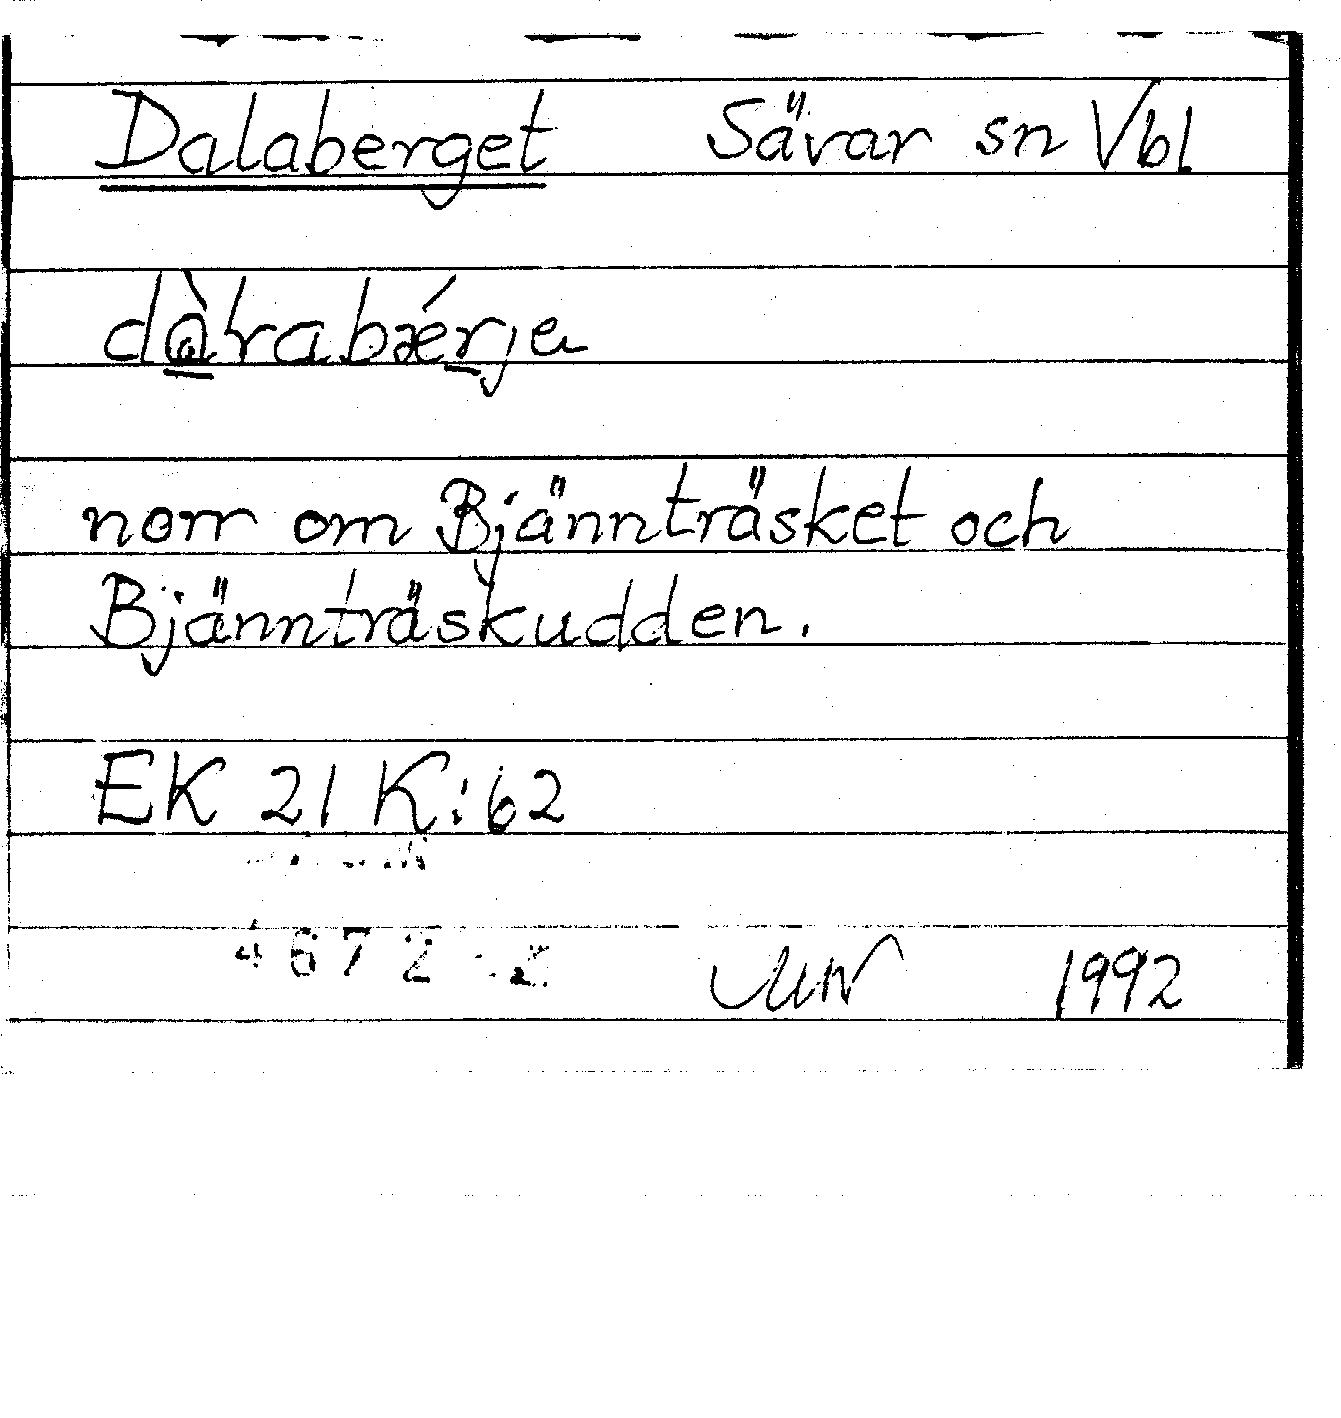 Dalaberget Sävar sn Vbl
dàlrabǽrje
norr om Bjännträsket och
Bjännträskudden.
EK 21 K:62
4672
1992